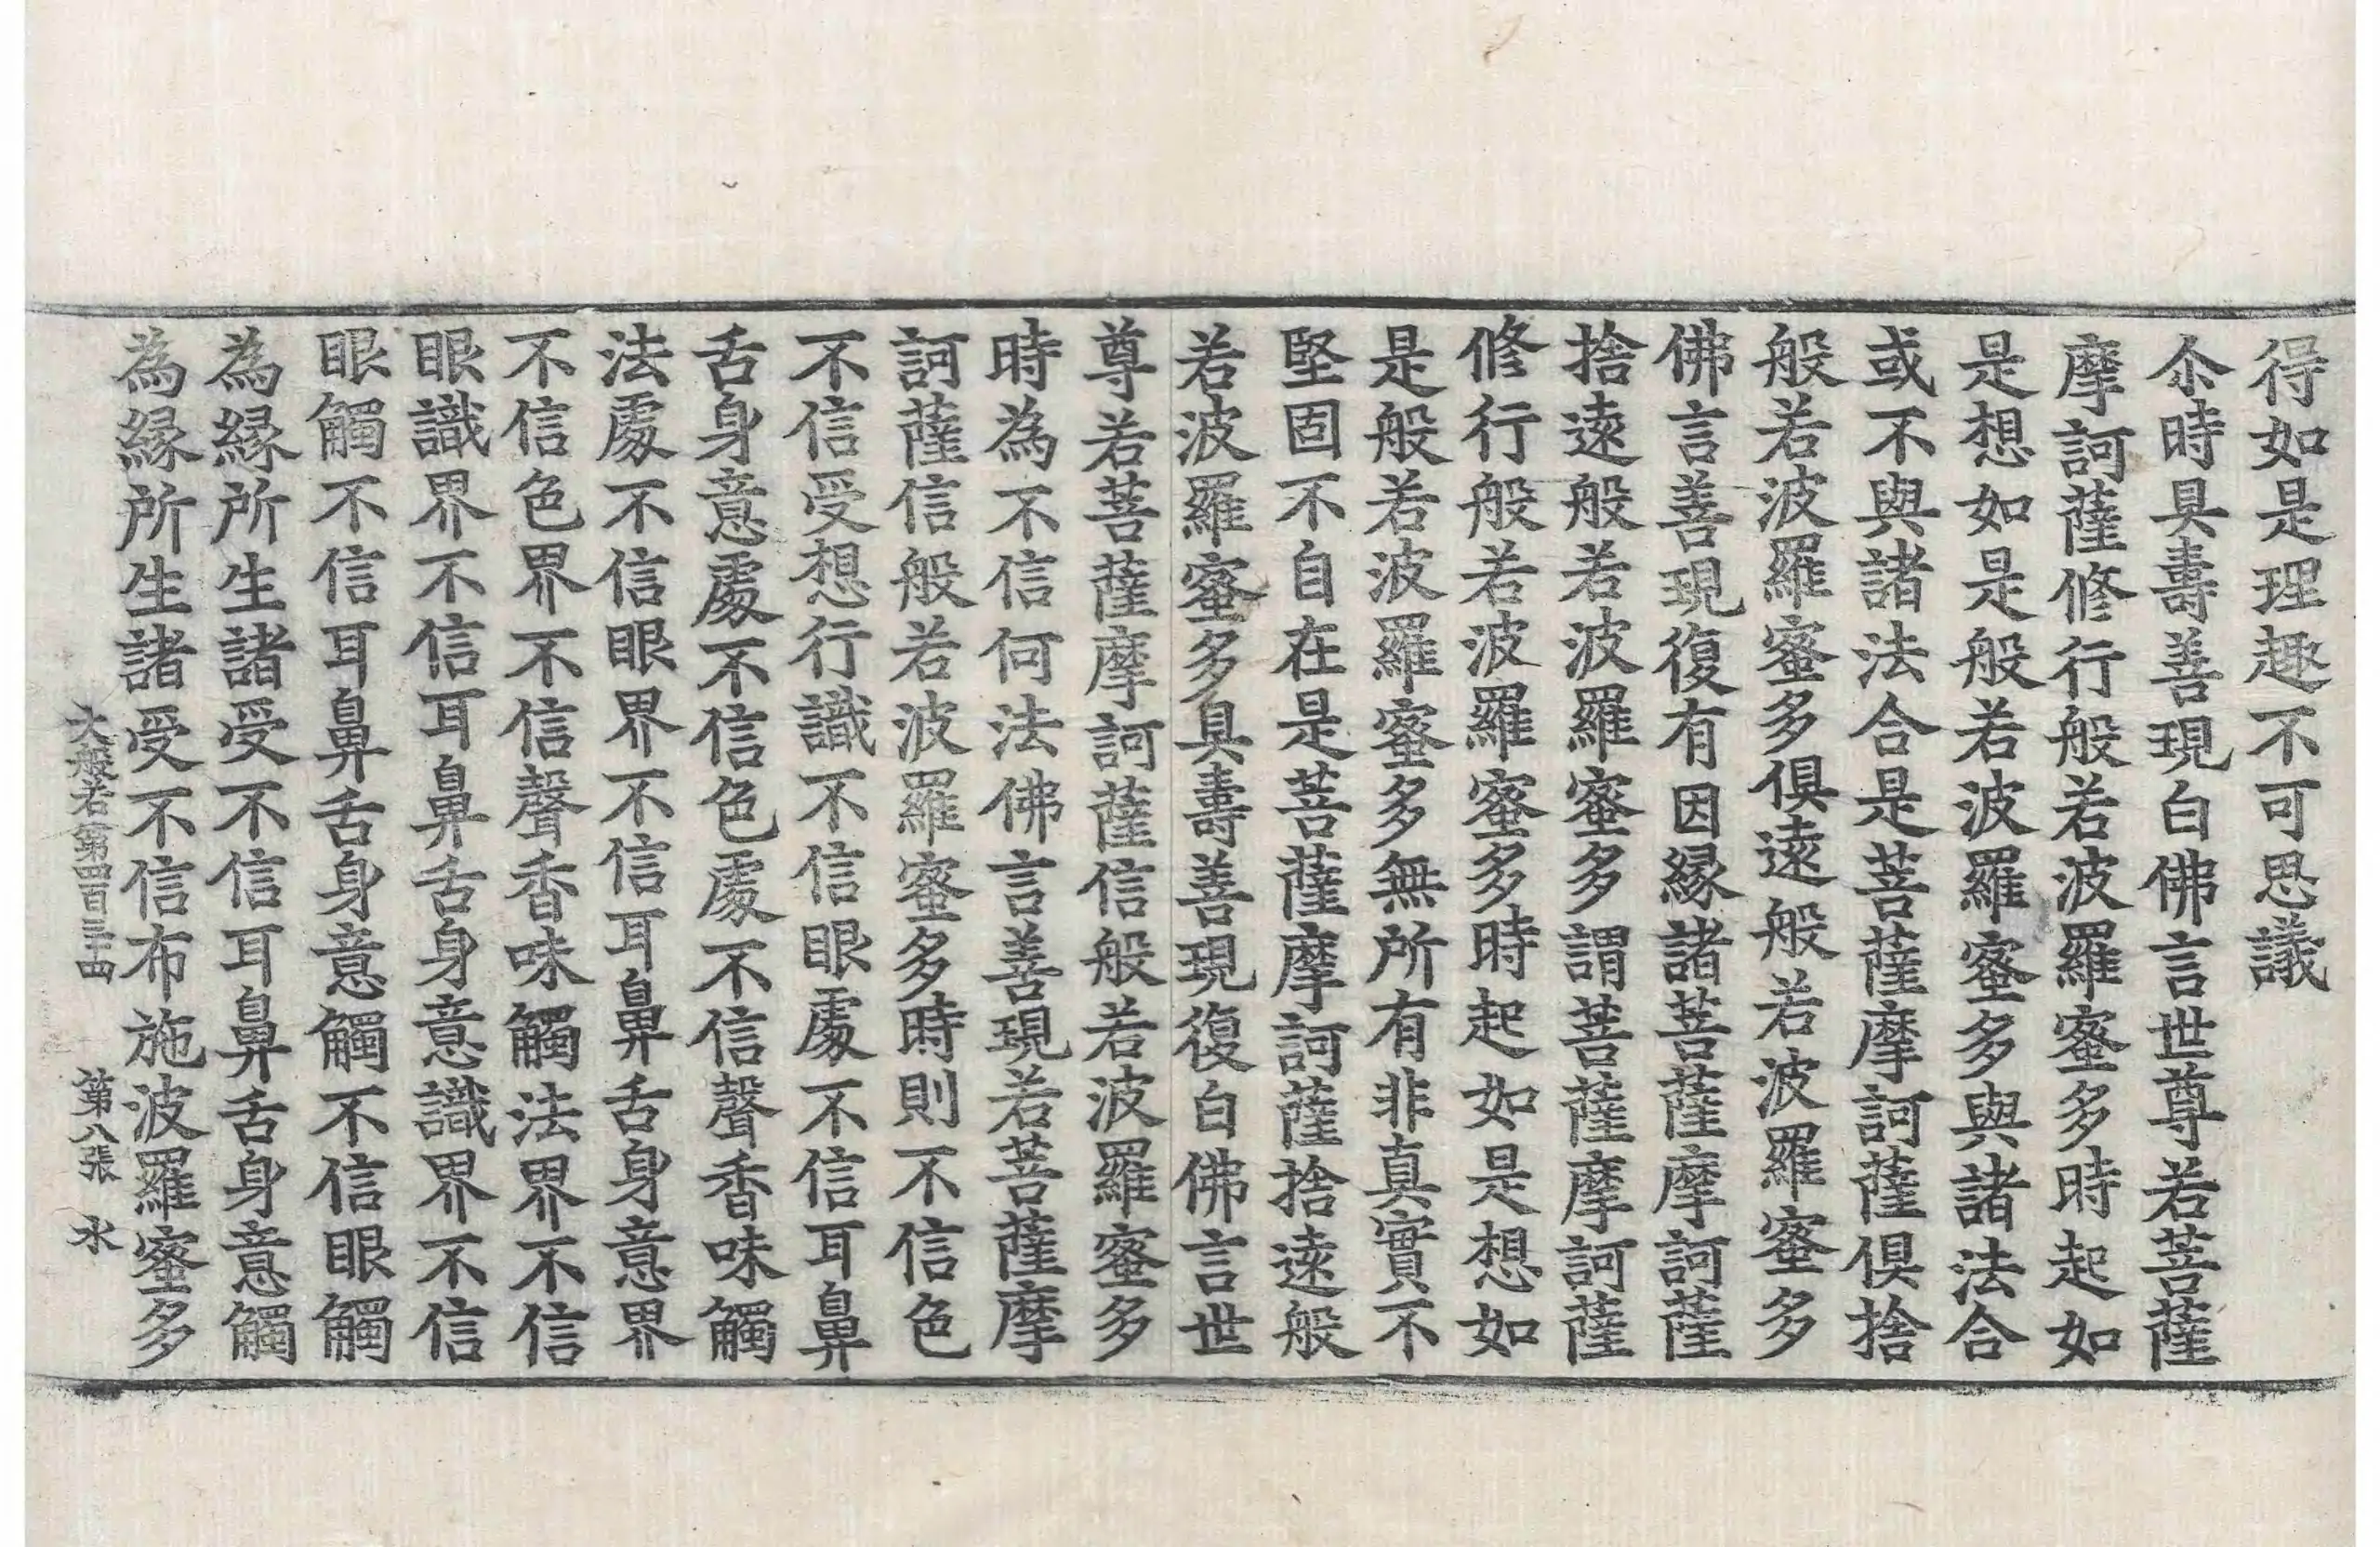 得如是理趣不可思議
尒時具壽善現白佛言世尊若菩薩
摩訶薩修行般若波羅蜜多時起如
是想如是般若波羅蜜多與諸法合
或不與諸法合是菩薩摩訶薩俱捨
般若波羅蜜多俱遠般若波羅蜜多
佛言善現復有因緣諸菩薩摩訶薩
捨遠般若波羅蜜多謂菩薩摩訶薩
修行般若波羅蜜多時起如是想如
是般若波羅蜜多無所有非真實不
堅固不自在是菩薩摩訶薩捨遠般
若波羅蜜多具壽善現復白佛言世
尊若菩薩摩訶薩信般若波羅蜜多
時為不信何法佛言善現若菩薩摩
訶薩信般若波羅蜜多時則不信色
不信受想行識不信眼處不信耳鼻
舌身意處不信色處不信聲香味觸
法處不信眼界不信耳鼻舌身意界
不信色界不信聲香味觸法界不信
眼識界不信耳鼻舌身意識界不信
眼觸不信耳鼻舌身意觸不信眼觸
為緣所生諸受不信耳鼻舌身意觸
為緣所生諸受不信布施波羅蜜多
大般若第四百三十四 第八張 水